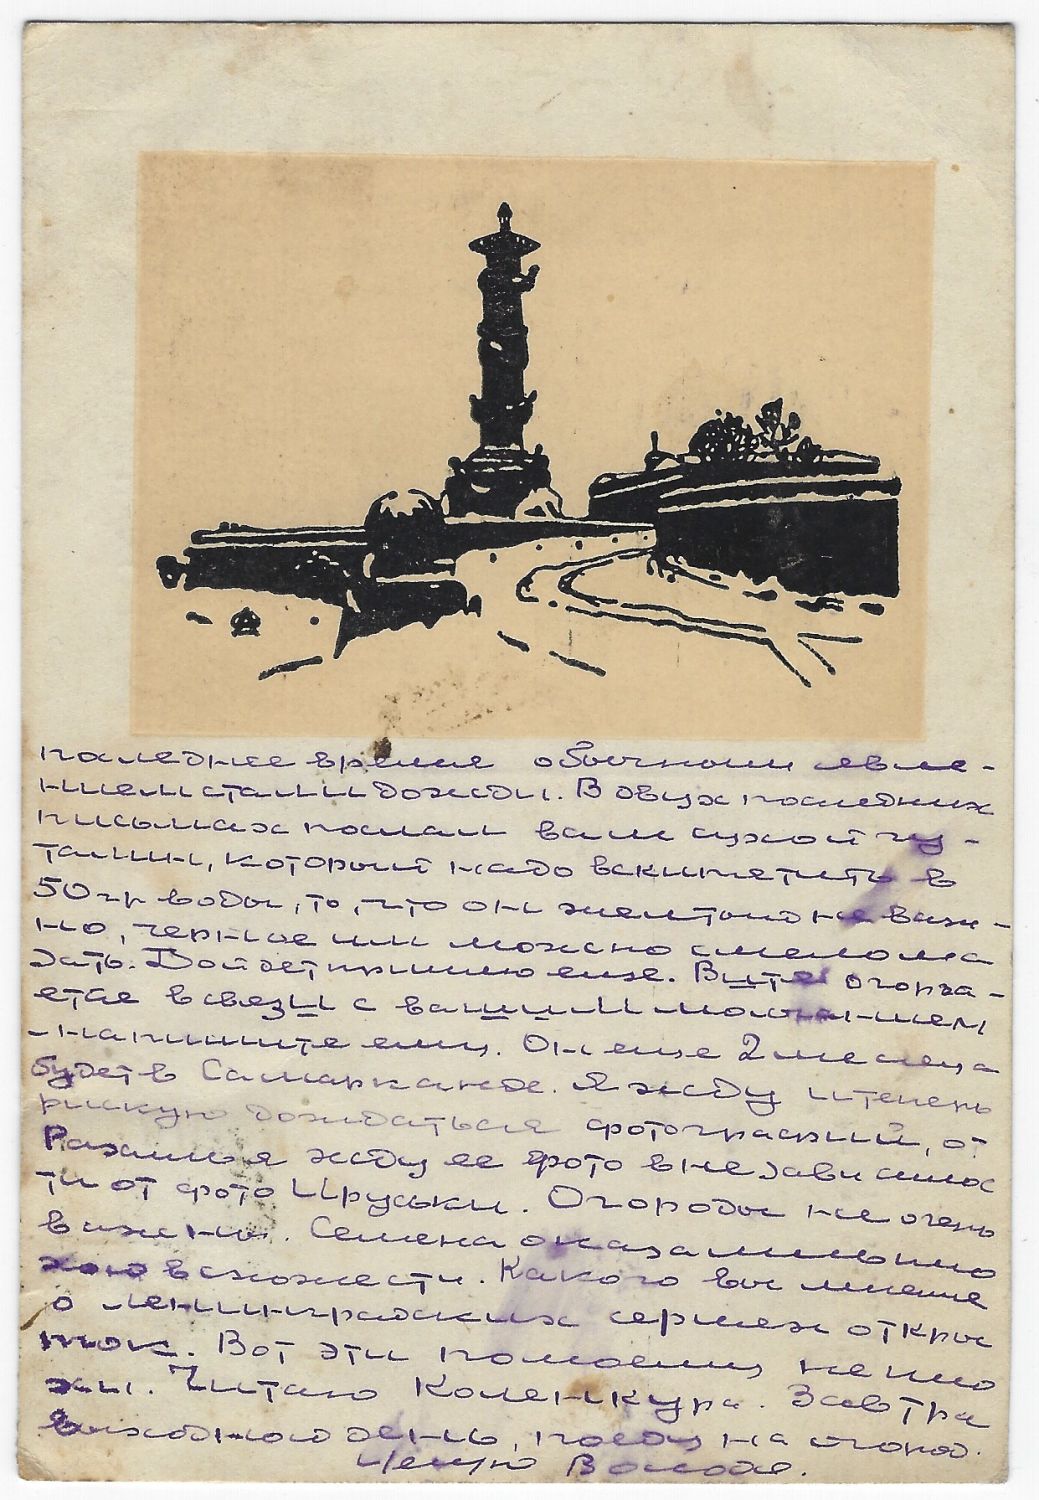 последнее время обычным явле-
нием стали дожди. В двух последних
письмах послал вам сухой гу-
талин, который надо вскипятить в
50 гр воды, то, что он желтый не важ-
но, черные им можно смело ма
зать. Дойдет прямо еще. Витя огорча-
ется в связи с вашим молчанием
- напишите ему. Он еще 2 месяца
будет в Самарканде. Я жду и теперь
рискую дождаться фотографий, от
Розалия жду ее фото в независимос
ти от фото Ируськи. Огороды не очень
важны. Семена оказались пло
хой всхожести. Какого вы мнения
о ленинградских сериях откры
ток. Вот эти по-моему не пло
хи. Читаю Коленкура. Завтра
выходной день, поеду на огород.
Целую Володя.